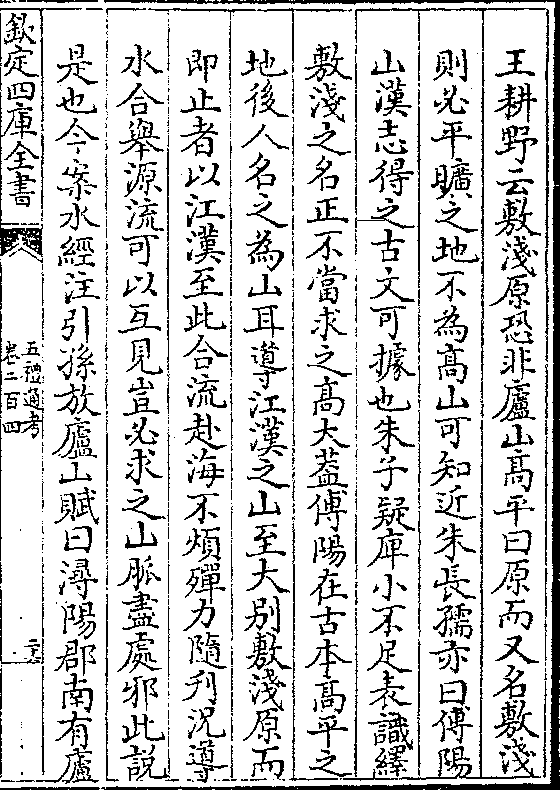 王耕野云敷淺原恐非廬山髙平曰原而又名敷淺
則必平曠之地不為髙山可知近朱長孺亦曰傅陽
山漢志得之古文可據也朱子疑庳小不足表識繹
敷淺之名正不當求之髙大葢傅陽在古本髙平之
地後人名之為山耳導江漢之山至大别敷淺原而
即止者以江漢至此合流赴海不煩殫力隨刋況導
水合舉源流可以互見豈必求之山脈盡處邪此説
是也今案水經注引孫放廬山賦曰潯陽郡南有廬
欽定四庫全書
五禮通考
卷二百四